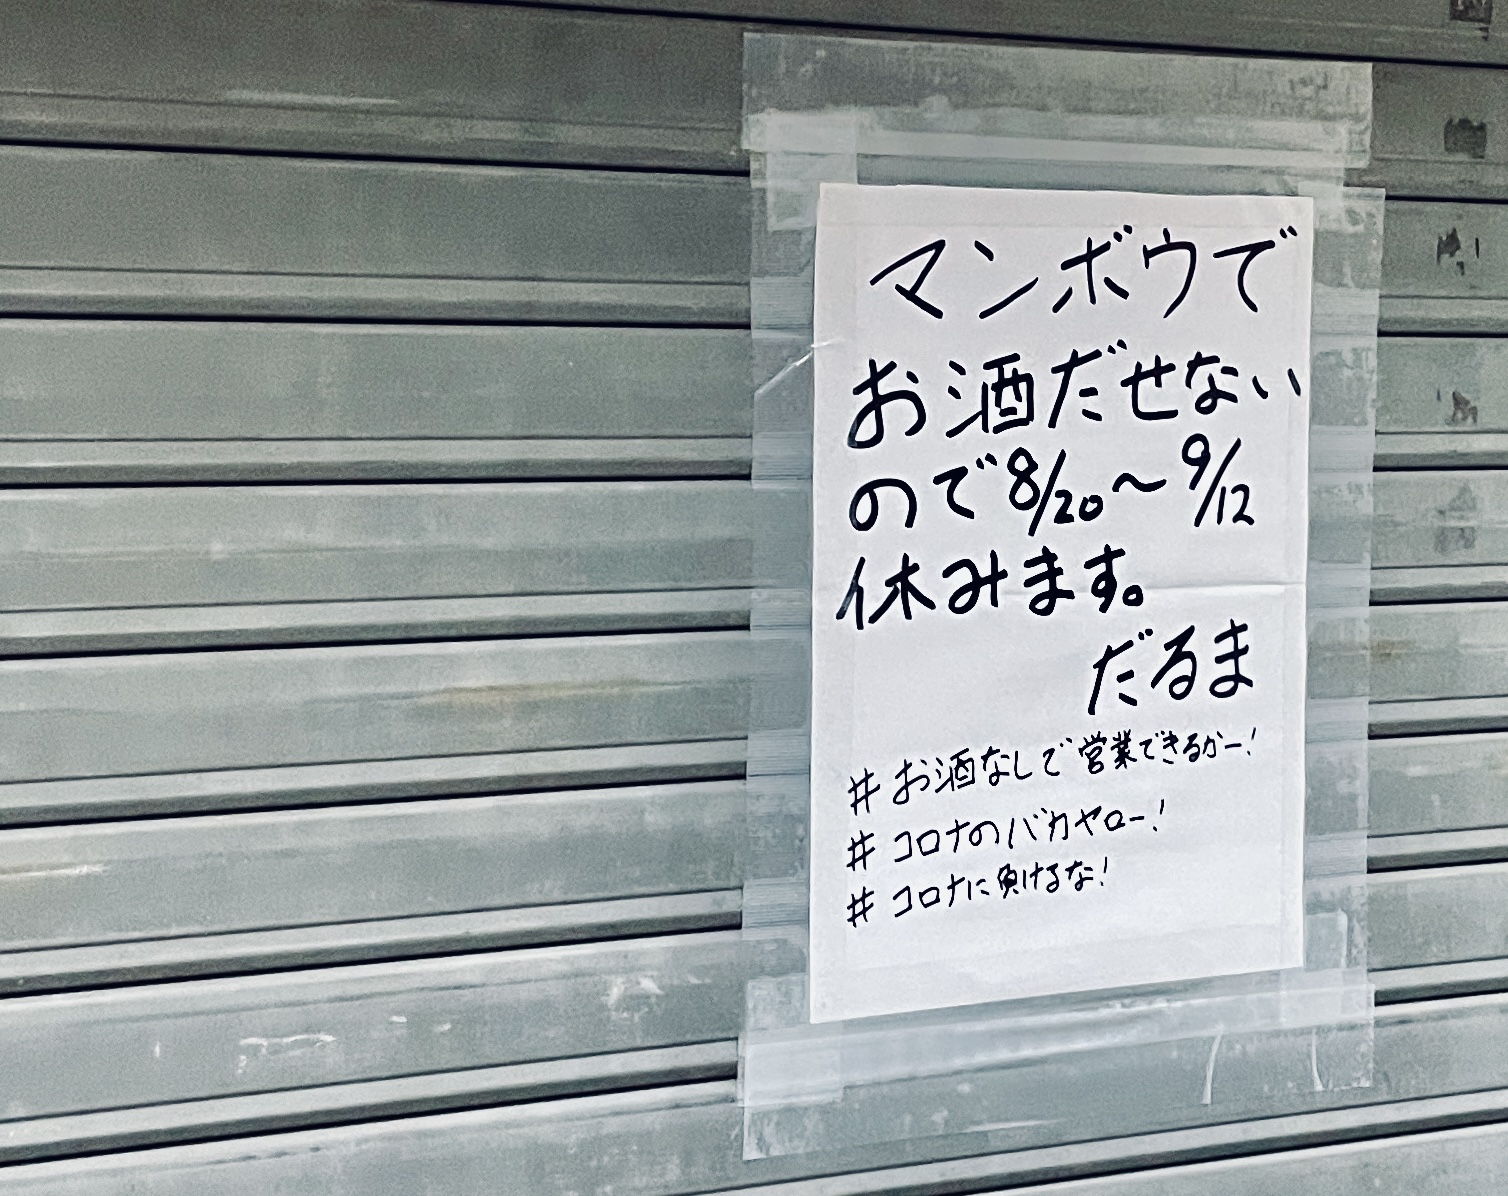 マンボウで
お酒だせない
ので8/20～9/12
休みます。
だるま
#お酒なしで営業できるかー!
#コロナのバカヤロー!
#コロナに負けるな!